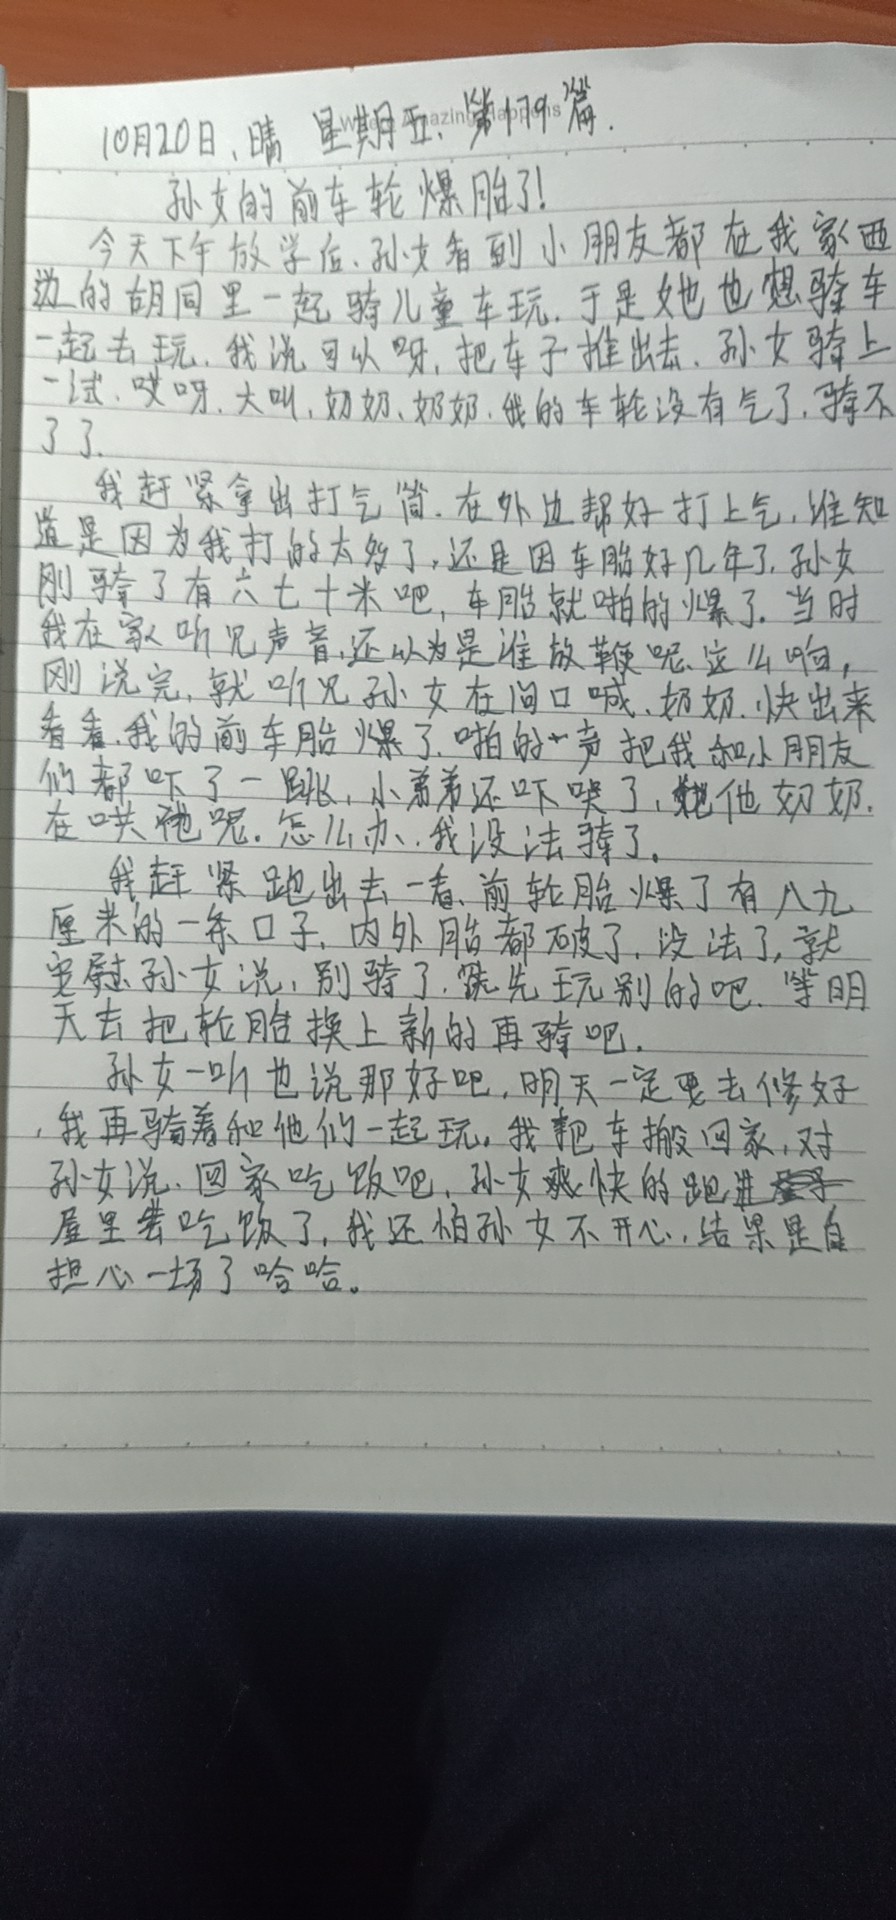 10月20日、晴 星期五、第179篇.
孙女的前车轮爆胎了!
今天下午放学后、孙女看到小朋友都在我家西
边的胡同里一起骑儿童车玩.于是她也想骑车
一起去玩.我说可以呀.把车子推出去.孙女骑上
一试.哎呀.大叫.奶奶、奶奶.我的车轮没有气了.骑不
了了.
我赶紧拿出打气筒.在外边帮好打上气,谁知
道是因为我打的太多了,还是因车胎好几年了.孙女
刚骑了有六七十米吧,车胎就啪的爆了.当时
我在家听见声音,还以为是谁放鞭呢.这么响,
刚说完,就听见孙女在门口喊、奶奶.快出来
看看.我的前车胎爆了.啪的一声把我和小朋友
们都吓了一跳,小弟弟还吓哭了,他奶奶.
在哄他呢.怎么办.我没法骑了。
我赶紧跑出去一看、前轮胎爆了有八九
厘米的一条口子.内外胎都破了.没法了,就
安慰孙女说,别骑了.先玩别的吧.等明
天去把轮胎换上新的再骑吧.
孙女一听也说那好吧.明天一定要去修好
,我再骑着和他们一起玩。我把车搬回家,对
孙女说.回家吃饭吧.孙女爽快的跑进
屋里去吃饭了,我还怕孙女不开心,结果是白
担心一场了哈哈。